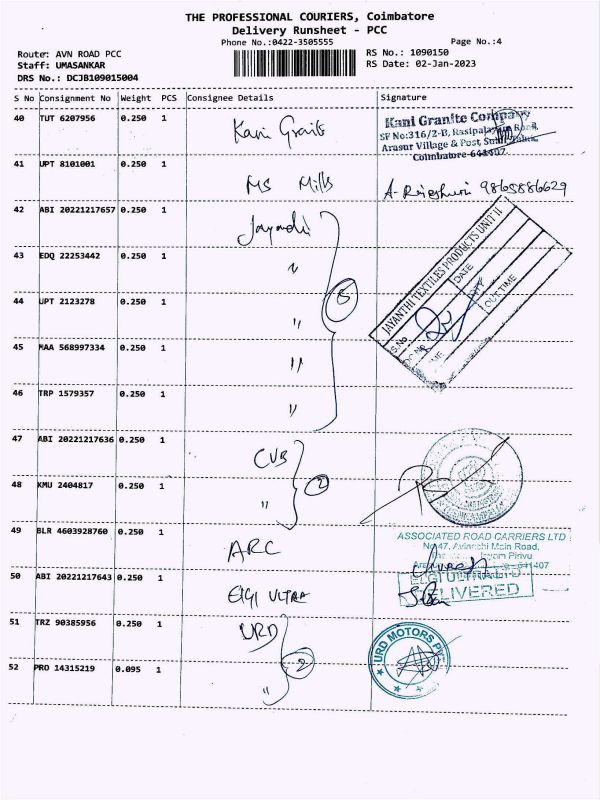 THE PROFESSIONAL COURIERS, Coimbatore
Delivery Runsheet - PCC
Phone No.:0422-3505555
Page No.:4
Route: AVN ROAD PCC
RS No.: 1090150
Staff: UMASANKAR
RS Date: 02-Jan-2023
DRS No.: DCJB109015004
S No Consignment No Weight PCS Consignee Details Signature
40 TUT 6207956 0.250 1 Kani Granite
Kani Granite Company
SF No:316/2-B, Rasipalayam Road,
Arasur Village & Post, Sulur Taluk,
Coimbatore-641407
41 UPT 8101001 0.250 1 MS Mills 9865886629
42 ABI 20221217657 0.250 1 Jayanthi
43 EDQ 22253442 0.250 1 "
44 UPT 2123278 0.250 1 "
5
45 MAA 568997334 0.250 1 "
46 TRP 1579357 0.250 1 "
JAYANTHI TEXTILES PRODUCTS UNIT II
S.NO DATE
DC NO QTY
OUT TIME
47 ABI 20221217636 0.250 1 CVB
48 KMU 2404817 0.250 1 "
2
49 BLR 4603928760 0.250 1 ARC
ASSOCIATED ROAD CARRIERS LTD
No.47, Avinashi Main Road,
Pirivu
641407
50 ABI 20221217643 0.250 1 ELGI ULTRA
ELGI ULTRA
DELIVERED
51 TRZ 90385956 0.250 1 URD
52 PRO 14315219 0.095 1 "
2
URD MOTORS